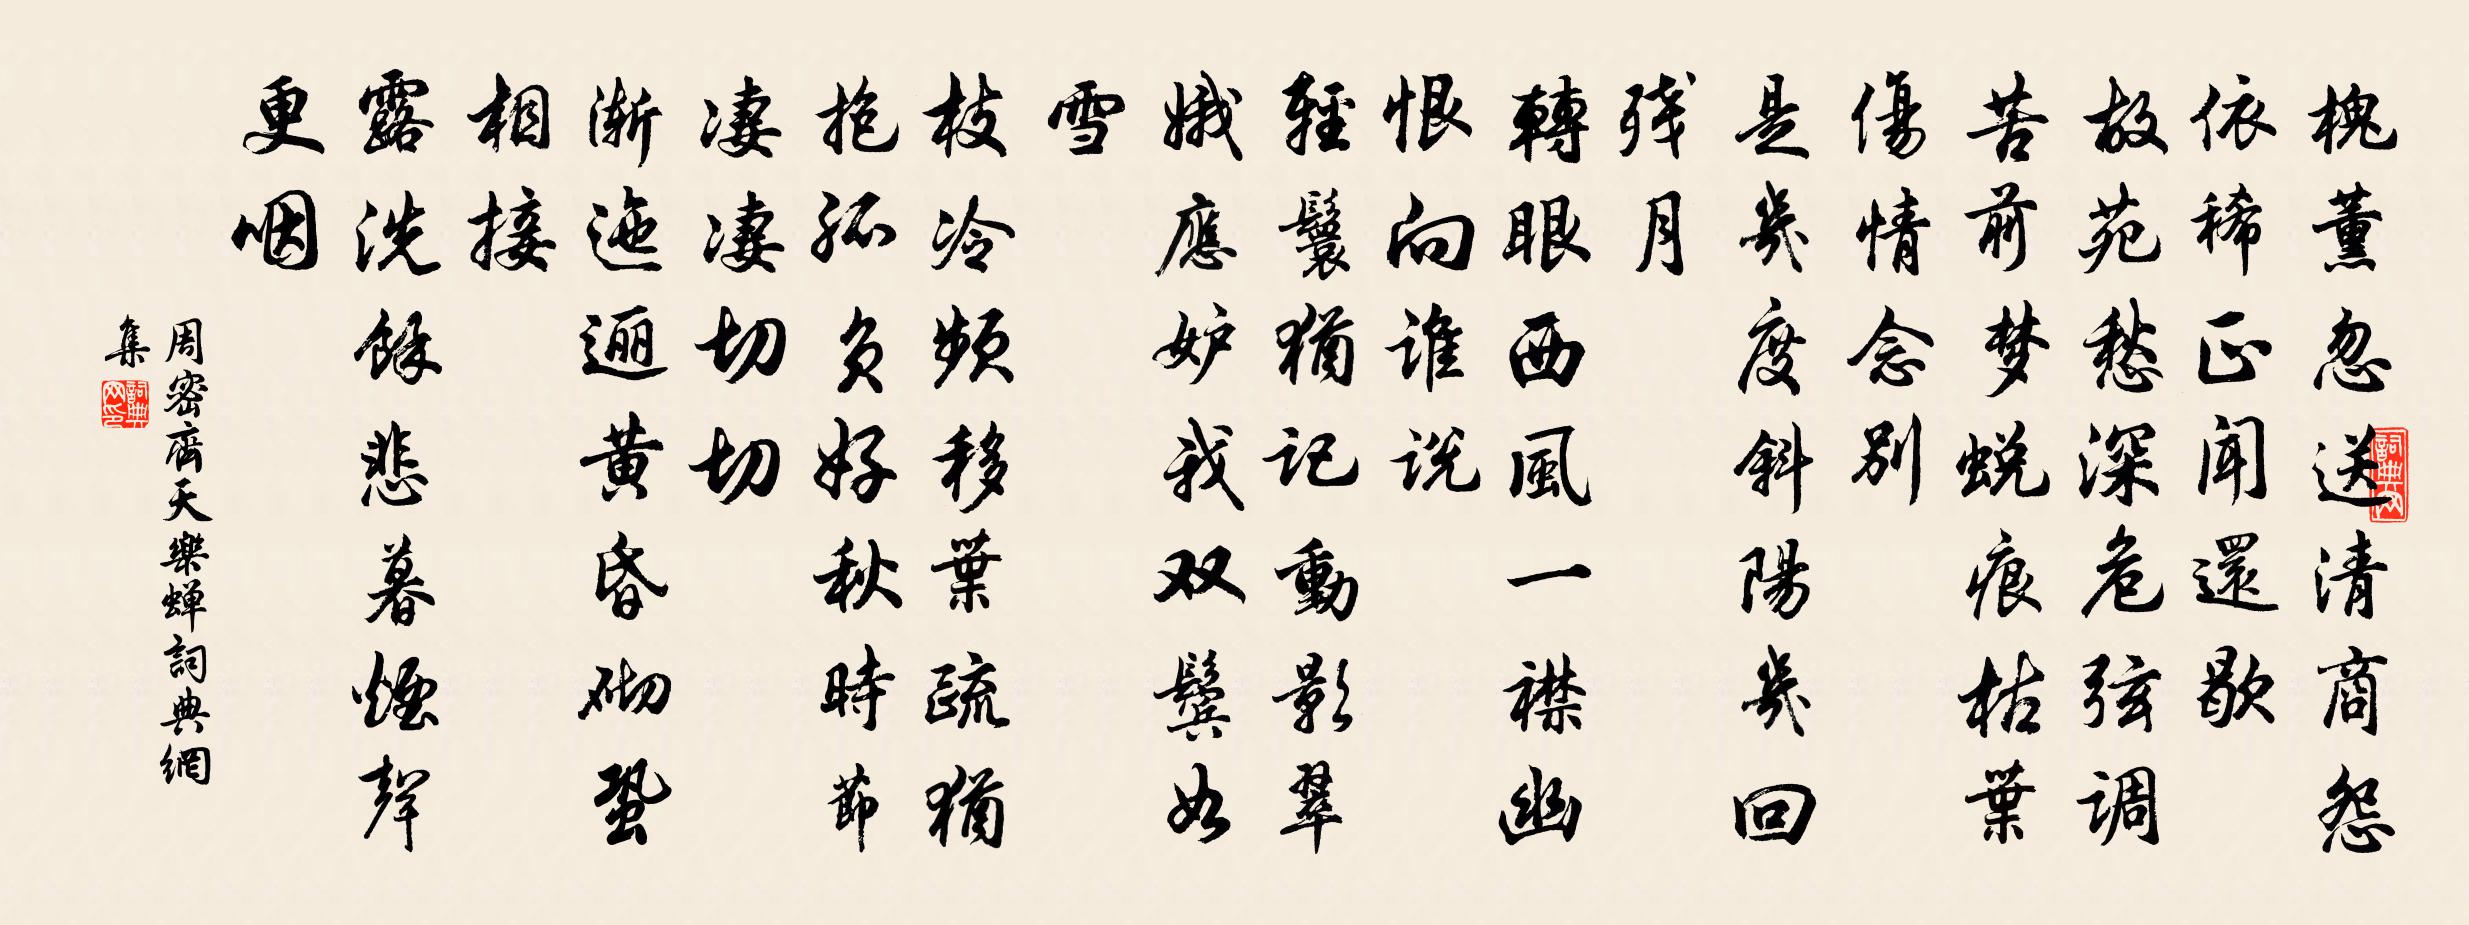 槐薰忽送清商怨
依稀正聞還歇
故苑愁深危弦调
苦前梦蜕痕枯葉
傷情念别
是幾度斜陽幾回
残月
轉眼西風一襟幽
恨向谁说
輕鬟猶记動影翠
娥應妒我双鬓如
雪
枝冷频移葉疏猶
抱孤负好秋時節
凄凄切切
渐迤逦黄昏砌蛩
相接
露洗餘悲暮煙聲
更咽
周密齊天樂蝉詞典網
集
詞典网
詞典网印